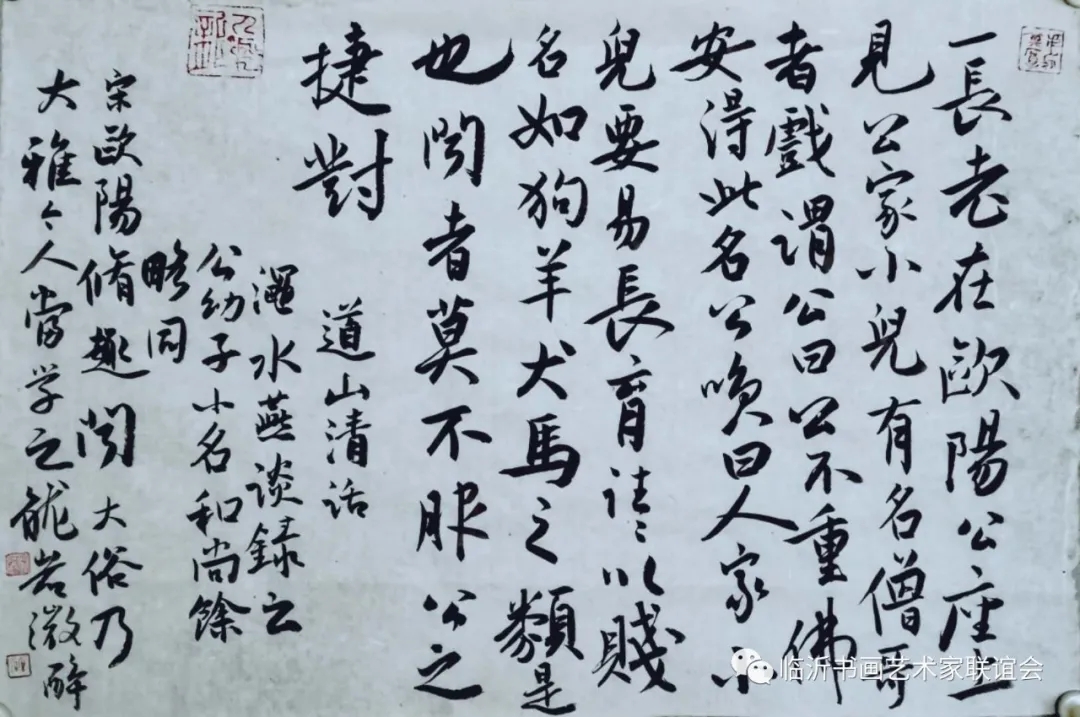 一長老在歐陽公座上
見公家小兒有名僧哥
者戲謂公曰公不重佛
安得此名公喚曰人家小
兒要易長育往々以賤
名如狗羊犬馬之類是
也聞者莫不服公之
捷對
道山清話
澠水燕談録云
公幼子小名和尚餘
略同
宋歐陽脩趣聞 大俗乃
大雅今人當学之 岩微醉
临沂书画艺术家联谊会